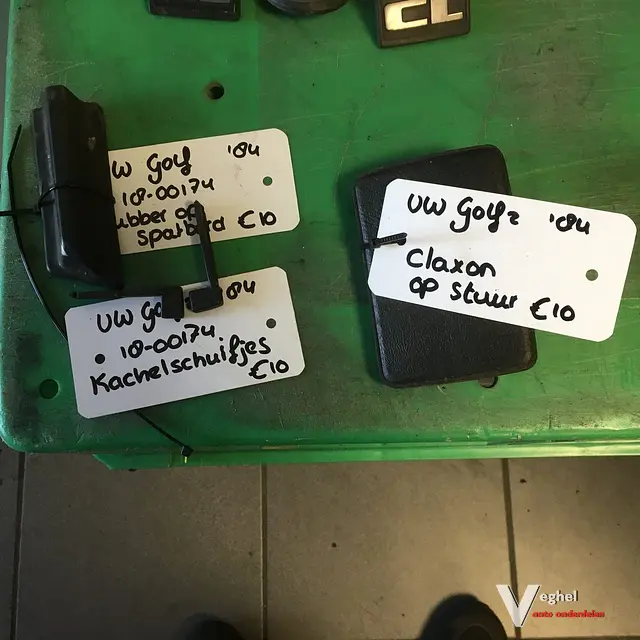 CL
W Golf '84
10-00174
ubber op
Spatbord €10
VW Golf 2 '84
Claxon
op Stuur €10
VW Go '84
10-00174
Kachelschuifjes
€10
Veghel
auto onderdelen